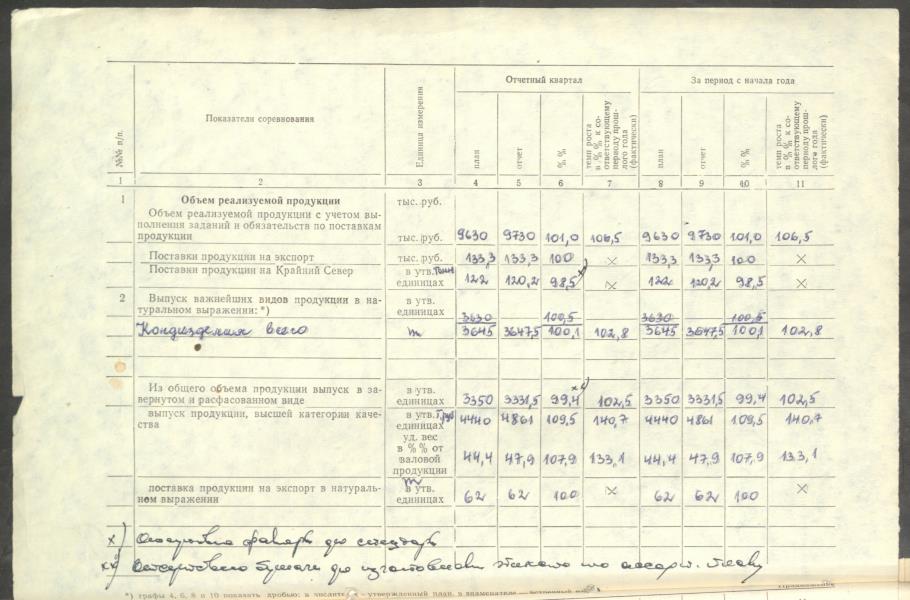 Отчетный квартал За период с начала года
№№ п/п. Показатели соревнования Единица измерения план отчет % % темп роста в % % к соответствующему периоду прошлого года (фактически) план отчет % % темп роста в % % к соответствующему периоду прошлого года (фактически)
1 2 3 4 5 6 7 8 9 10 11
1 Объем реализуемой продукции тыс. руб.
Объем реализуемой продукции с учетом вы-
полнения заданий и обязательств по поставкам
продукции тыс. руб. 9630 9730 101,0 106,5 9630 9730 101,0 106,5
Поставки продукции на экспорт тыс. руб. 133,3 133,3 100 × 133,3 133,3 100 ×
Поставки продукции на Крайний Север в утв. тонн
единицах 122 120,2 98,5 х) × 122 120,2 98,5 ×
2 Выпуск важнейших видов продукции в на- в утв.
туральном выражении: *) единицах 3630 100,5 3630 100,5
Кондизделия всего т 3645 3647,5 100,1 102,8 3645 3647,5 100,1 102,8
Из общего объема продукции выпуск в за- в утв. хх)
вернутом и расфасованном виде единицах 3350 3331,5 99,4 102,5 3350 3331,5 99,4 102,5
выпуск продукции, высшей категории каче- в утв. т.руб 4440 4861 109,5 140,7 4440 4861 109,5 140,7
ства единицах
уд. вес
в % % от
валовой 44,4 47,9 107,9 133,1 44,4 47,9 107,9 133,1
продукции
т
поставка продукции на экспорт в натураль- в утв.
ном выражении единицах 62 62 100 × 62 62 100 ×
х)
хх) бумаги
*) графы 4, 6, 8 и 10 показать дробью: в числителе — утвержденный план, в знаменателе — встречный